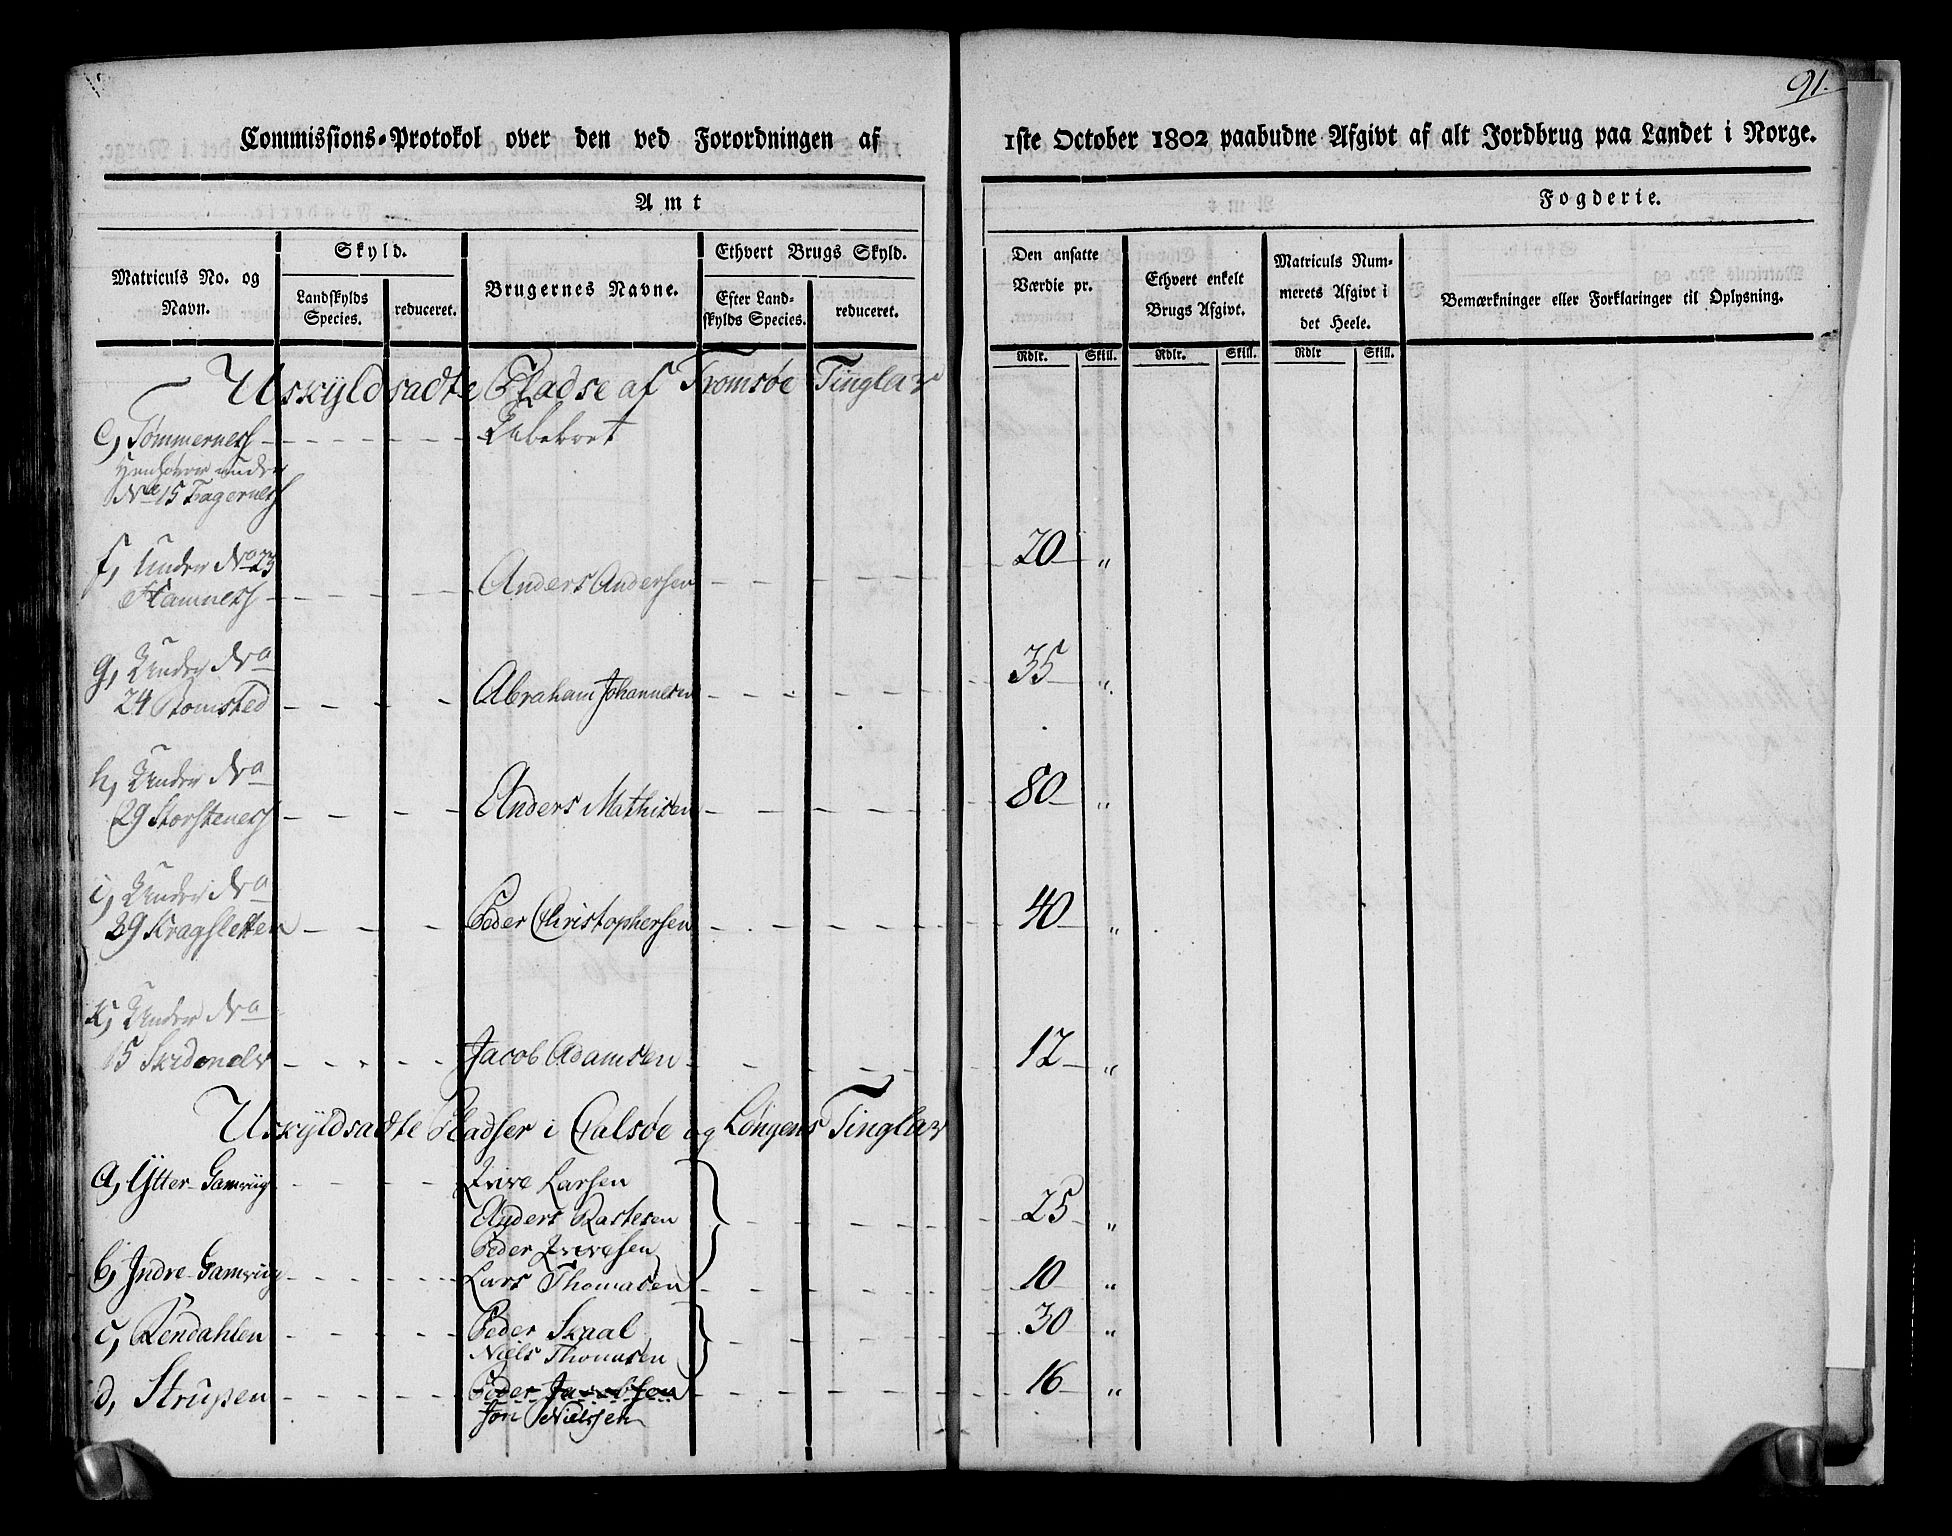 91.
Commissions-Protokol over den ved Forordningen af 1ste October 1802 paabudne Afgivt af alt Jordbrug paa Landet i Norge.
Amt
Fogderie.
Matriculs No. og Navn.
Skyld.
Landskylds Species.
reduceret.
Brugernes Navne.
Ethvert Brugs Skyld.
Efter Landskylds Species.
reduceret.
Den ansatte Værdie pr.
Ethvert enkelt Brugs Afgivt.
Matriculs Nummerets Afgivt i det Heele.
Bemærkninger eller Forklaringer til Oplysning.
Rdlr. Skill. Rdlr. Skill. Rdlr Skill.
Uskyldsadte Pladse af Tromsøe Tinglav
e, Tømmerness - - - - - Ubeboet
henhører under
No 15 Fagerness
f, Under No 23
Hamness - - - - Anders Andersen - - - 20 "
g, Under No
24 Bomsted - - - Abraham Johannesen - - - 35 "
h, Under No
29 Storsteness - - - Anders Mathisen - - - 80 "
i, Under No
29 Kragsletten - - - Peder Christophersen - - - 40 "
k, Under No
15 Skidenelv - - - Jacob Adamsen - - - 12 "
Uskyldsadte Pladser i Calsøe og Løngens Tinglav
a, Ytter-Gamvig - - - Iver Larsen
Anders Rastesen - - - 25 "
Peder Iversen
b, Indre-Gamvig - - - Lars Thomasen - - - 10 "
c, Rendahlen - - - Peder Skaal - - - 30 "
Niels Thomasen
d, Strupen - - - Peder Jacobsen - - - 16 "
Jon Nielsen